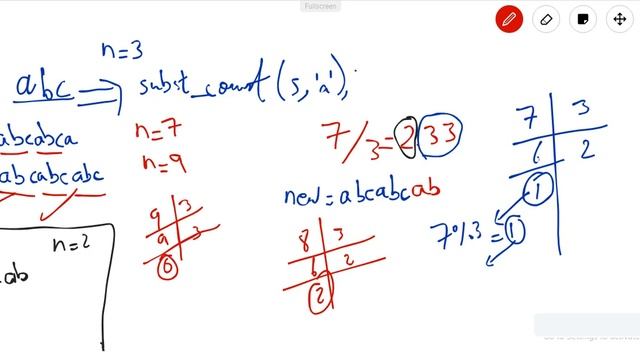 Fullscreen
n=3
abc ⟹ subst_count(s,'a');
abcabca
n=7
n=9
abcabcabc
7/3=233
new=abcabcab
7 3
6 2
1
7%3=1
9 3
9 3
0
8 3
6 2
2
n=2
ab